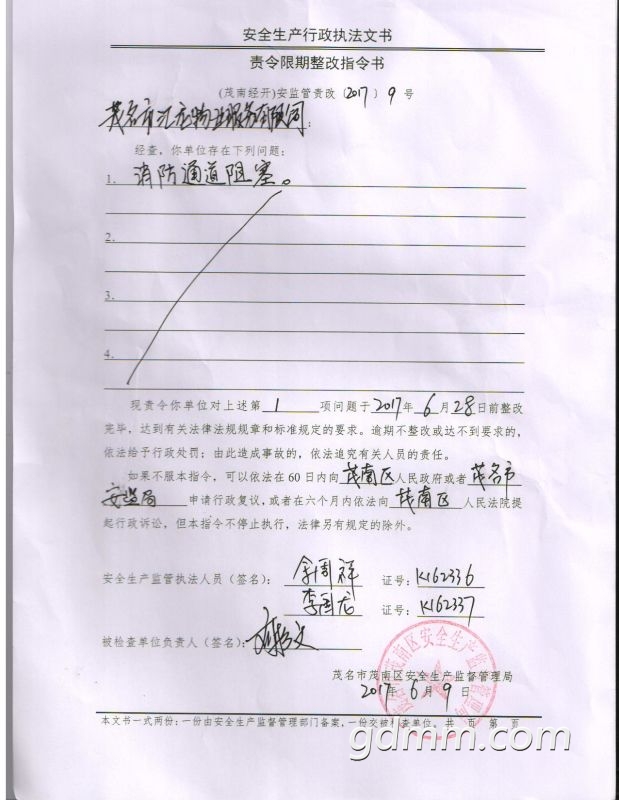 安全生产行政执法文书
责令限期整改指令书
(茂南经开)安监管责改〔2017〕9号
茂名市汇宏物业服务有限公司:
经查,你单位存在下列问题:
1. 消防通道阻塞。
2.
3.
4.
现责令你单位对上述第 1 项问题于2017年6月28日前整改
完毕,达到有关法律法规规章和标准规定的要求。逾期不整改或达不到要求的,
依法给予行政处罚;由此造成事故的,依法追究有关人员的责任。
如果不服本指令,可以依法在60日内向茂南区人民政府或者茂名市
安监局 申请行政复议,或者在六个月内依法向 茂南区 人民法院提
起行政诉讼,但本指令不停止执行,法律另有规定的除外。
安全生产监管执法人员(签名): 余周祥 证号: K162336
李国龙 证号: K162337
被检查单位负责人(签名):
茂名市茂南区安全生产监督管理局
2017年6月9日
本文书一式两份:一份由安全生产监督管理部门备案,一份交被检查单位。共 页 第 页
gdmm.com